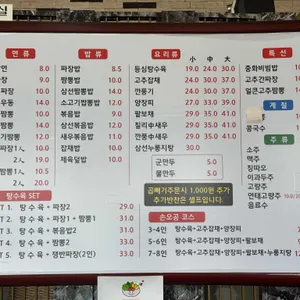 면 류
8.0
9.0
짬뽕 10.0
짜장 10.0
우동 14.0
짜장 10.0
짬뽕 11.0
짬뽕 12.0
짜장1人 10.0
짬뽕1人 11.0
2人 20.0
밥 류
짜장밥 8.5
짬뽕밥 10.0
볶음밥 10.0
삼선짬뽕밥 11.0
소고기짬뽕밥 14.0
삼선볶음밥 12.0
삼선짬뽕밥 12.0
잡채밥 10.0
제육덮밥 10.0
요 리 류
小 中 大
등심탕수육 19.0 24.0 30.0
고추잡채 24.0 30.0 35.0
깐풍기 24.0 30.0 35.0
양장피 27.0 33.0 39.0
팔보채 29.0 35.0 41.0
칠리中새우 29.0 35.0 41.0
깐풍中새우 29.0 35.0 41.0
삼선누룽지탕 30.0
군만두 5.0
물만두 5.0
곱빼기주문시 1,000원 추가
추가반찬은 셀프입니다.
특 선
중화비빔밥
고추간짜장
얼큰고추짬뽕
계 절
콩국수
주 류
소주
맥주
칭따오
이과두주
고량주
연태고량주
음료수
탕수육 SET
1. 탕 수 육 + 짜장2 29.0
T 2. 탕 수 육 + 짜장1 + 짬뽕1 31.0
T 3. 탕 수 육 + 볶음밥2 31.0
T 4. 탕 수 육 + 짬뽕2 33.0
T 5. 탕 수 육 + 쟁반짜장(2인) 33.0
손오공 코스
3-4인 탕수육+고추잡채+양장피
5-6인 탕수육+고추잡채+양장피+팔보채
7-8인 탕수육+고추잡채+양장피+팔보채+누룽지탕